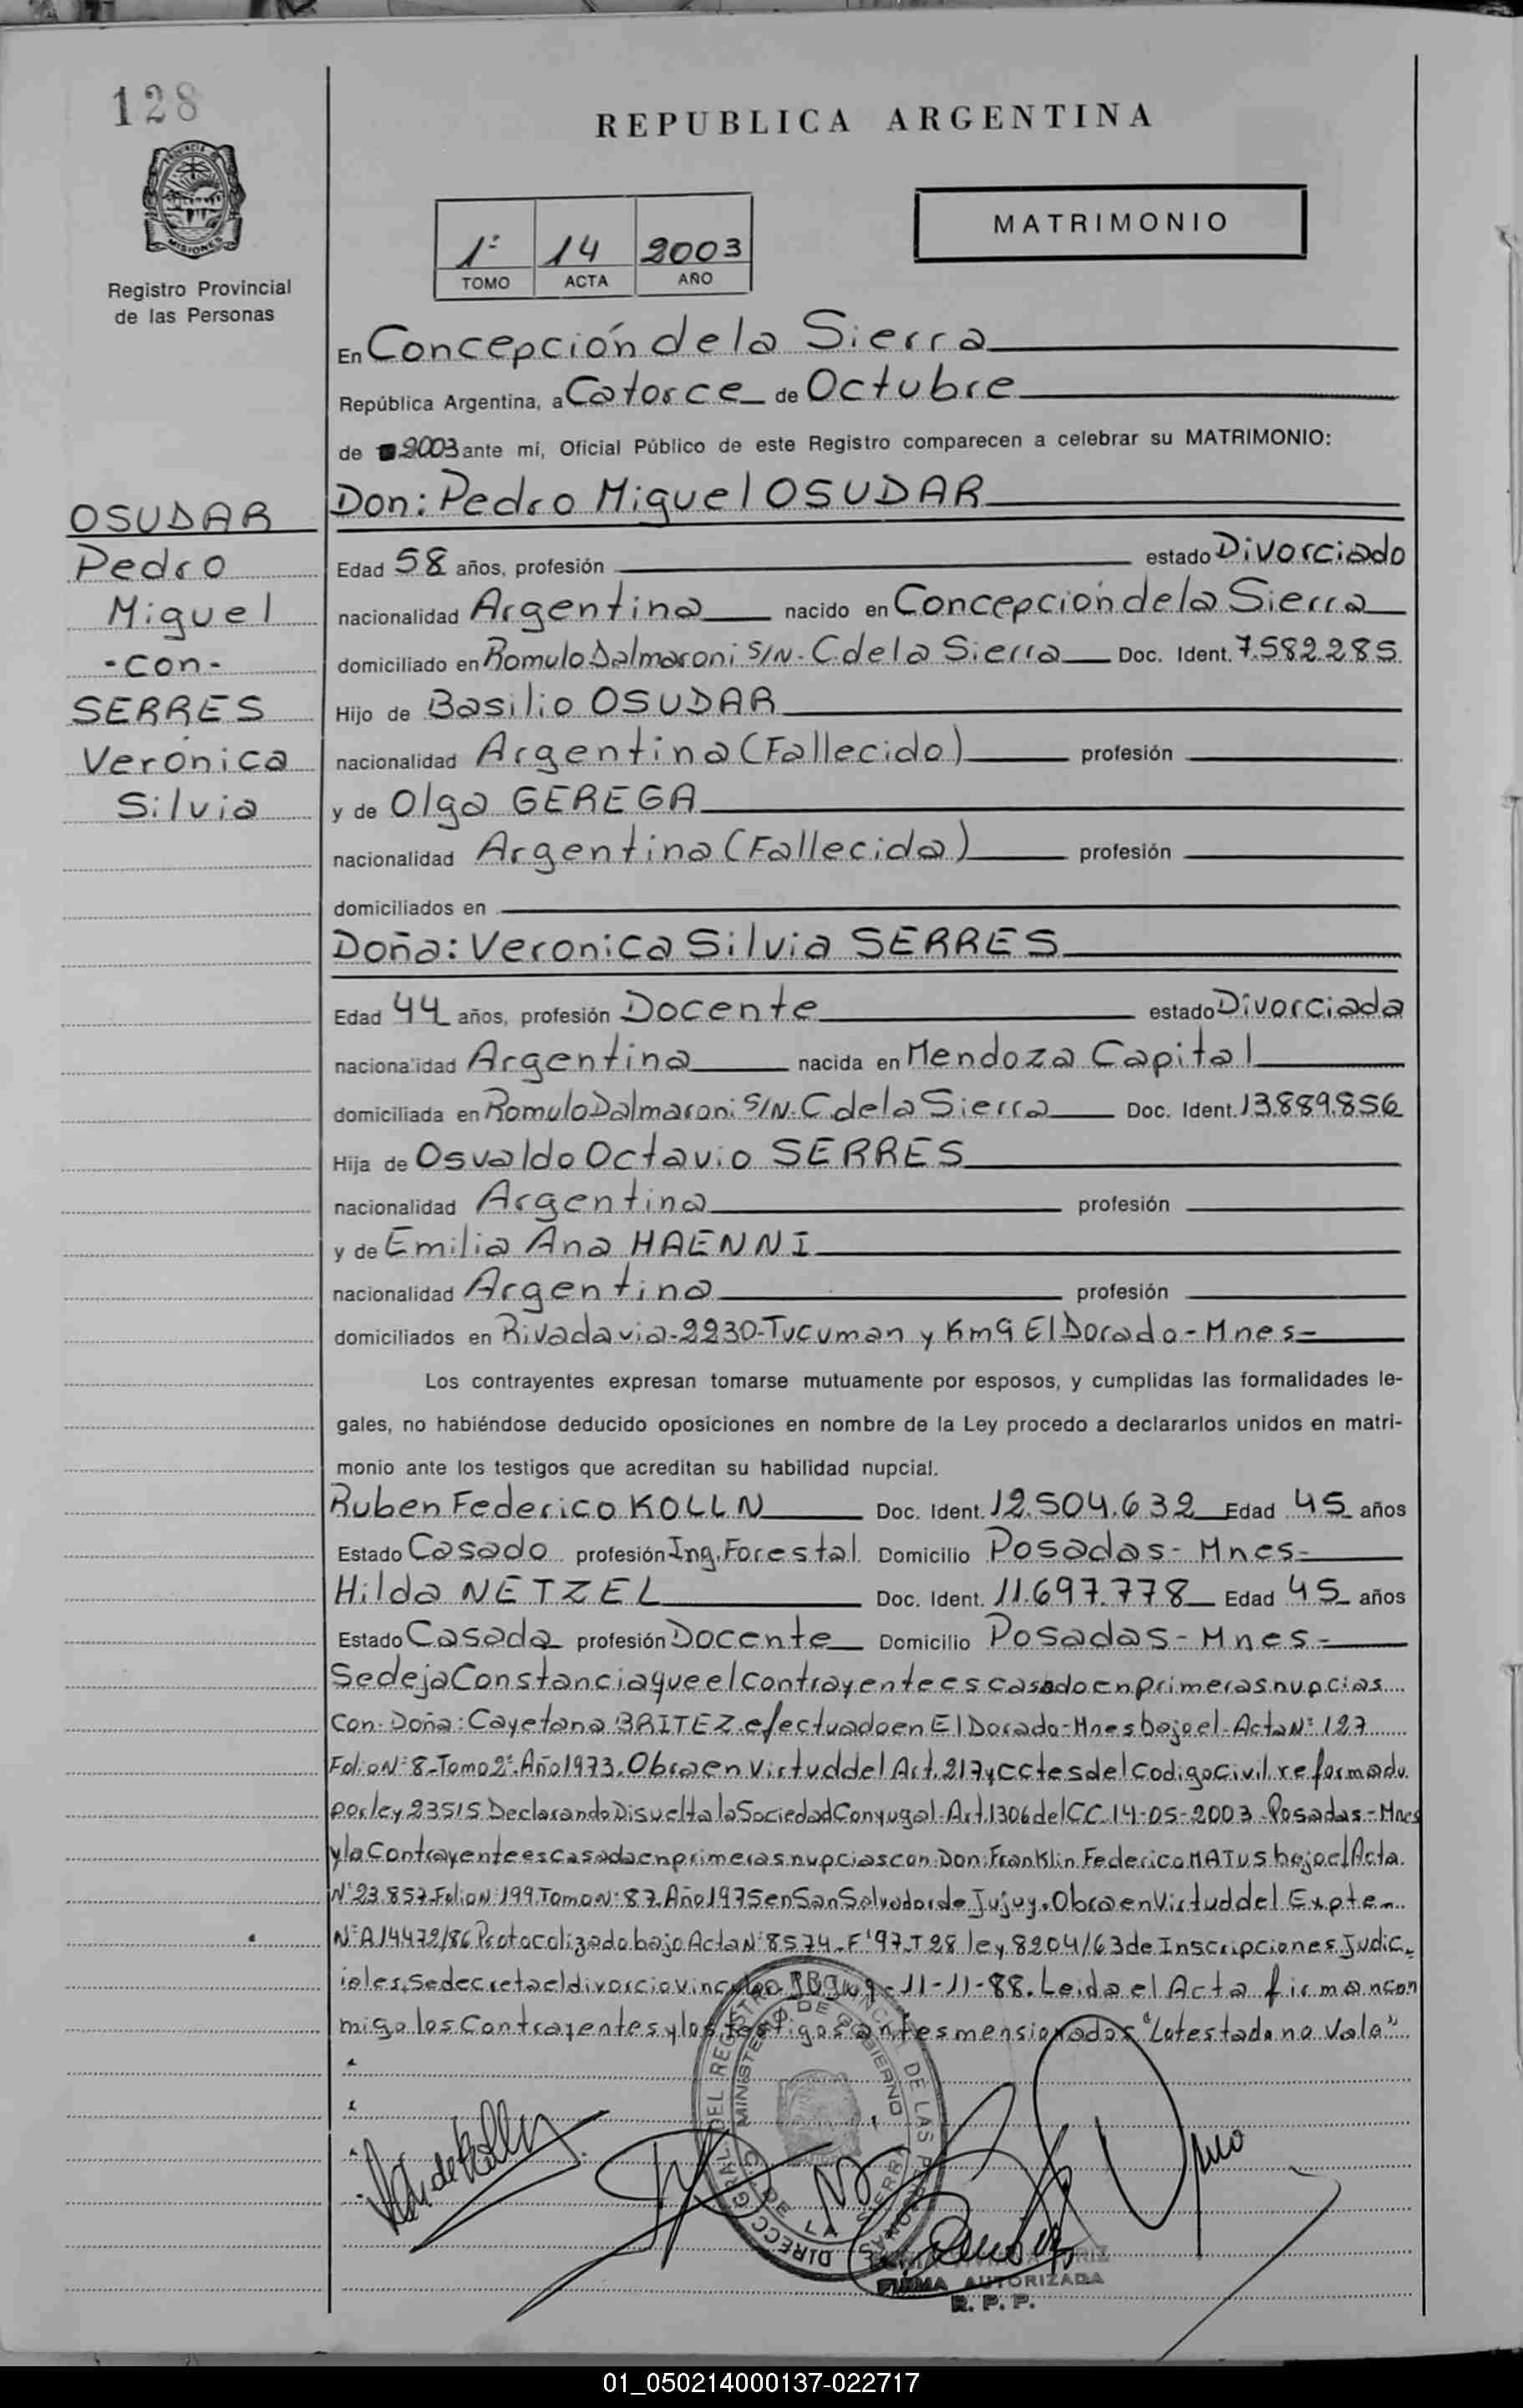 128
REPUBLICA ARGENTINA
PROVINCIA DE
MISIONES
Registro Provincial
de las Personas
1º 14 2003
TOMO ACTA AÑO
MATRIMONIO
En Concepción de la Sierra
República Argentina, a Catorce de Octubre
de 2003 ante mí, Oficial Público de este Registro comparecen a celebrar su MATRIMONIO:
OSUDAR
Pedro
Miguel
-con-
SERRES
Verónica
Silvia
Don: Pedro Miguel OSUDAR
Edad 58 años, profesión estado Divorciado
nacionalidad Argentina nacido en Concepción de la Sierra
domiciliado en Romulo Dalmaroni S/N- C. de la Sierra Doc. Ident. 7.582.285
Hijo de Basilio OSUDAR
nacionalidad Argentina (Fallecido) profesión
y de Olga GEREGA
nacionalidad Argentina (Fallecida) profesión
domiciliados en
Doña: Veronica Silvia SERRES
Edad 44 años, profesión Docente estado Divorciada
nacionalidad Argentina nacida en Mendoza Capital
domiciliada en Romulo Dalmaroni S/N- C. de la Sierra Doc. Ident. 13.889.856
Hija de Osvaldo Octavio SERRES
nacionalidad Argentina profesión
y de Emilia Ana HAENNI
nacionalidad Argentina profesión
domiciliados en Rivadavia-2230-Tucuman y Km9 El Dorado-Mnes-
Los contrayentes expresan tomarse mutuamente por esposos, y cumplidas las formalidades le-
gales, no habiéndose deducido oposiciones en nombre de la Ley procedo a declararlos unidos en matri-
monio ante los testigos que acreditan su habilidad nupcial.
Ruben Federico KOLLN Doc. Ident. 12.504.632 Edad 45 años
Estado Casado profesión Ing. Forestal Domicilio Posadas-Mnes-
Hilda NETZEL Doc. Ident. 11.697.778 Edad 45 años
Estado Casada profesión Docente Domicilio Posadas-Mnes-
Se deja Constancia que el Contrayente es casado en primeras nupcias
Con Doña: Cayetana BRITEZ efectuado en El Dorado-Mnes bajo el Acta Nº 127
Folio Nº 8-Tomo 2º. Año 1973. Obra en Virtud del Art. 217 y cctes del Codigo Civil reformado
por ley 23515 Declarando Disuelta la Sociedad Conyugal-Art. 1306 del CC. 14-05-2003 Posadas-Mnes
y la Contrayente es Casada en primeras nupcias con Don: Franklin Federico MATUS bajo el Acta
Nº 23.857-Folio Nº 199 Tomo Nº 87. Año 1975 en San Salvador de Jujuy. Obra en Virtud del Expte-
Nº A14472/86 Protocolizado bajo Acta Nº 8574-Fº 97-T 28 ley 8204/63 de Inscripciones Judic-
iales, Se decreta el divorcio vincular Jujuy-11-11-88. Leida el Acta firman con
migo los Contrayentes y los testigos antes mensionados "Lo testado no Vale"
DIRECC. GRAL. DEL REGISTRO PROVINCIAL DE LAS PERSONAS
MINISTERIO DE GOBIERNO
C. DE LA SIERRA
FIRMA AUTORIZADA
R. P. P.
01_050214000137-022717